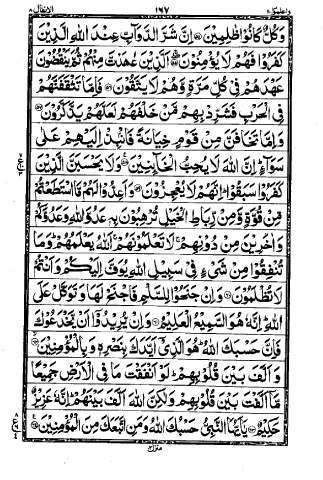 الانفال ٨ ١٦٧ واعلموا ١٠
وَكُلٌّ كَانُوْا ظٰلِمِيْنَ ۝ اِنَّ شَرَّ الدَّوَآبِّ عِنْدَ اللّٰهِ الَّذِيْنَ
كَفَرُوْا فَهُمْ لَا يُؤْمِنُوْنَ ۝ اَلَّذِيْنَ عٰهَدْتَّ مِنْهُمْ ثُمَّ يَنْقُضُوْنَ
عَهْدَهُمْ فِيْ كُلِّ مَرَّةٍ وَّهُمْ لَا يَتَّقُوْنَ ۝ فَاِمَّا تَثْقَفَنَّهُمْ
فِي الْحَرْبِ فَشَرِّدْ بِهِمْ مَّنْ خَلْفَهُمْ لَعَلَّهُمْ يَذَّكَّرُوْنَ ۝
وَاِمَّا تَخَافَنَّ مِنْ قَوْمٍ خِيَانَةً فَانْۢبِذْ اِلَيْهِمْ عَلٰى
سَوَآءٍ ؕ اِنَّ اللّٰهَ لَا يُحِبُّ الْخَآئِنِيْنَ ۝ وَلَا يَحْسَبَنَّ الَّذِيْنَ
كَفَرُوْا سَبَقُوْا ؕ اِنَّهُمْ لَا يُعْجِزُوْنَ ۝ وَاَعِدُّوْا لَهُمْ مَّا اسْتَطَعْتُمْ
مِّنْ قُوَّةٍ وَّمِنْ رِّبَاطِ الْخَيْلِ تُرْهِبُوْنَ بِهٖ عَدُوَّ اللّٰهِ وَعَدُوَّكُمْ
وَاٰخَرِيْنَ مِنْ دُوْنِهِمْ ۚ لَا تَعْلَمُوْنَهُمْ ۚ اَللّٰهُ يَعْلَمُهُمْ ؕ وَمَا
تُنْفِقُوْا مِنْ شَيْءٍ فِيْ سَبِيْلِ اللّٰهِ يُوَفَّ اِلَيْكُمْ وَاَنْتُمْ
لَا تُظْلَمُوْنَ ۝ وَاِنْ جَنَحُوْا لِلسَّلْمِ فَاجْنَحْ لَهَا وَتَوَكَّلْ عَلَى
اللّٰهِ ؕ اِنَّهٗ هُوَ السَّمِيْعُ الْعَلِيْمُ ۝ وَاِنْ يُّرِيْدُوْٓا اَنْ يَّخْدَعُوْكَ
فَاِنَّ حَسْبَكَ اللّٰهُ ؕ هُوَ الَّذِيْٓ اَيَّدَكَ بِنَصْرِهٖ وَبِالْمُؤْمِنِيْنَ ۝
وَاَلَّفَ بَيْنَ قُلُوْبِهِمْ ؕ لَوْ اَنْفَقْتَ مَا فِي الْاَرْضِ جَمِيْعًا
مَّآ اَلَّفْتَ بَيْنَ قُلُوْبِهِمْ وَلٰكِنَّ اللّٰهَ اَلَّفَ بَيْنَهُمْ ؕ اِنَّهٗ عَزِيْزٌ
حَكِيْمٌ ۝ يٰٓاَيُّهَا النَّبِيُّ حَسْبُكَ اللّٰهُ وَمَنِ اتَّبَعَكَ مِنَ الْمُؤْمِنِيْنَ ۝